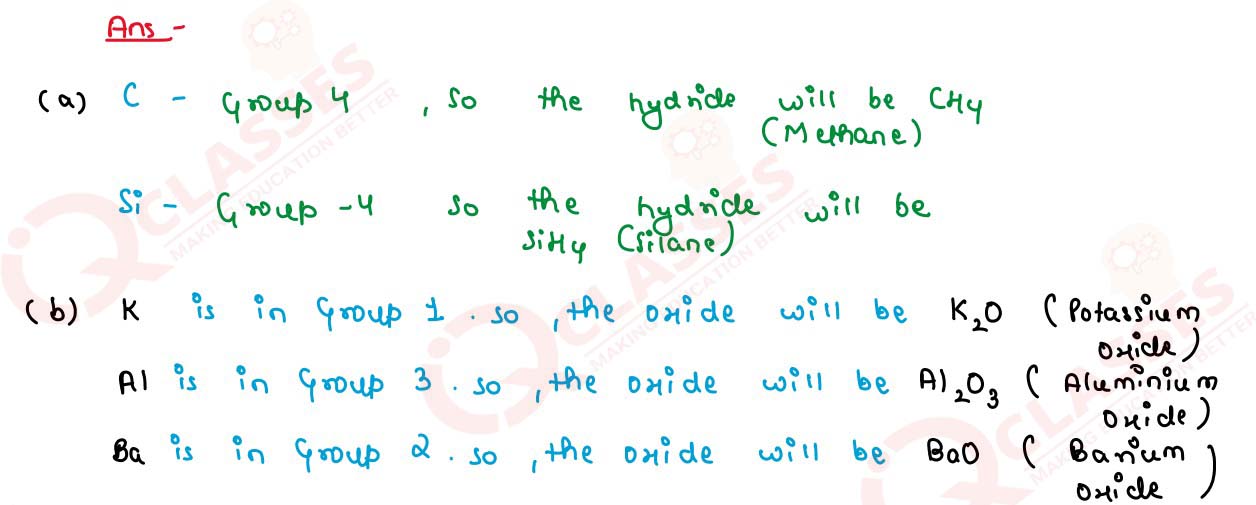 Ans -
(a) C - Group 4 , so the hydride will be CH4
(Methane)
Si - Group -4 so the hydride will be
SiH4 (Silane)
(b) K is in Group 1 . so , the oxide will be K₂O (Potassium
oxide)
Al is in Group 3 . so , the oxide will be Al₂O₃ (Aluminium
oxide)
Ba is in Group 2 . so , the oxide will be BaO (Barium
oxide)
CLASSES
MAKING EDUCATION BETTER
CLASSES
MAKING EDUCATION BETTER